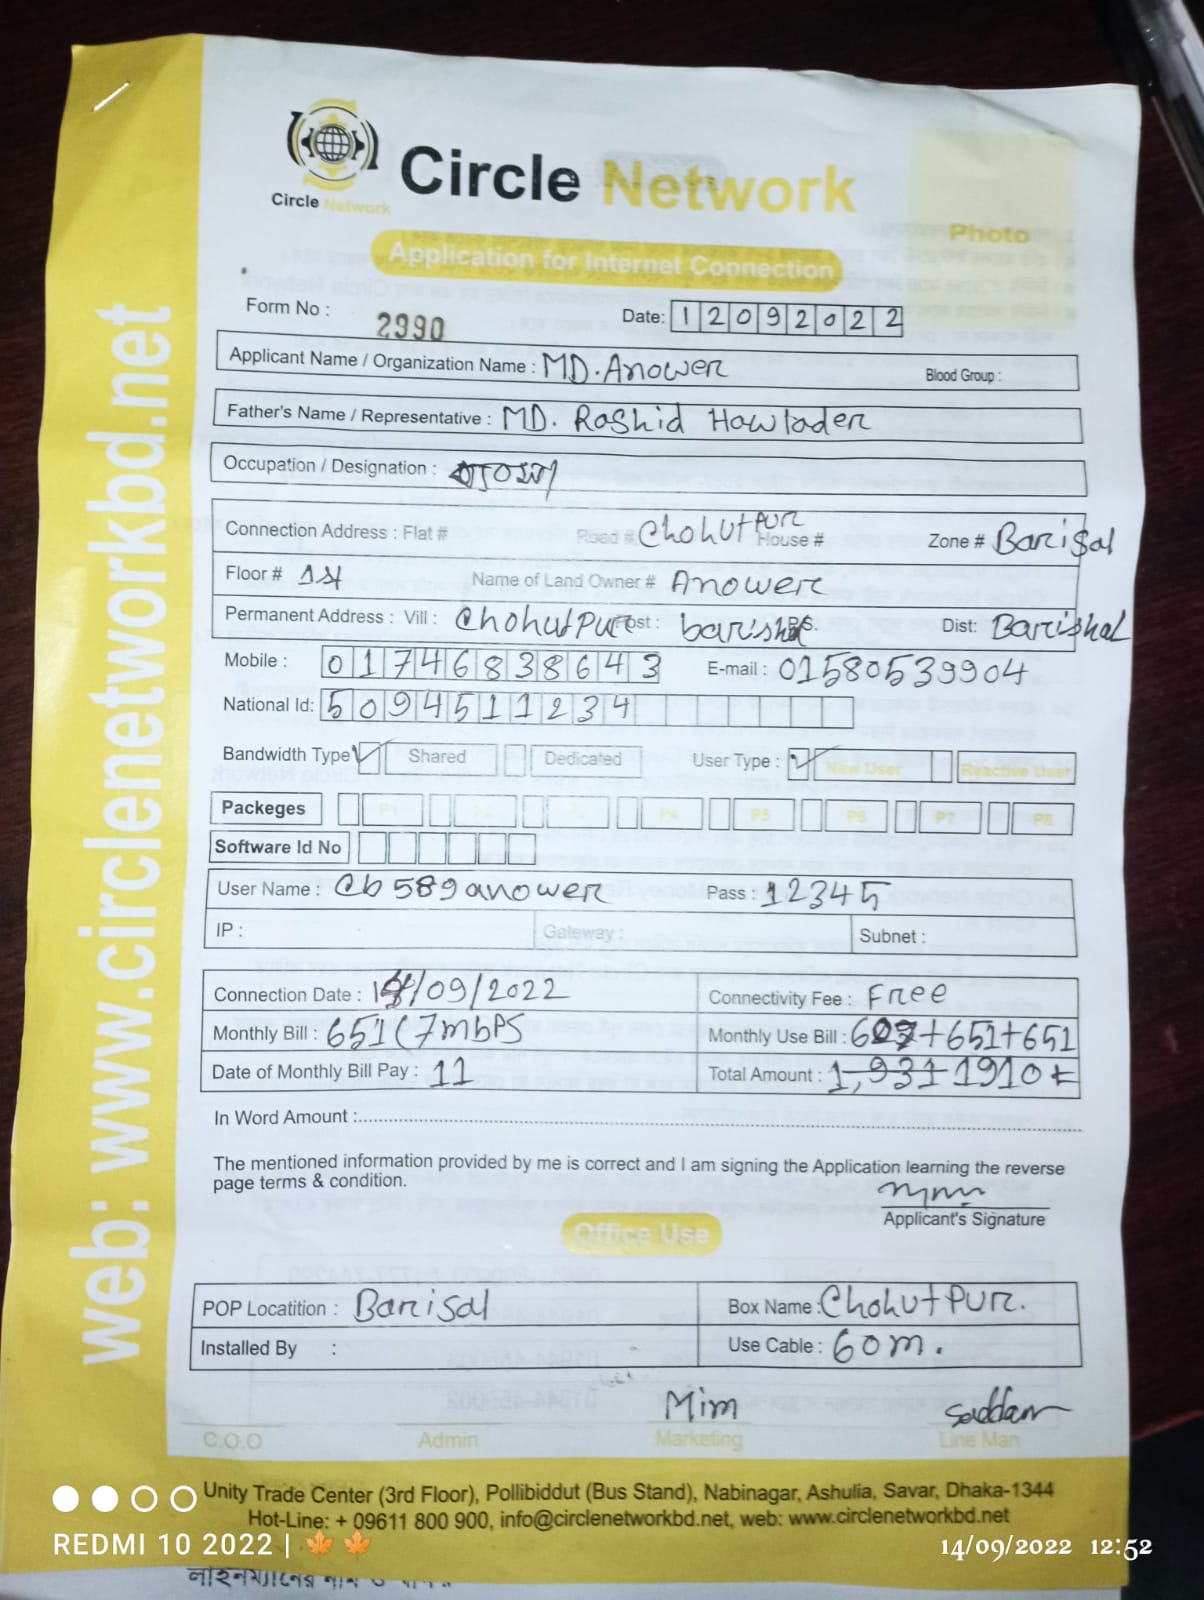 web: www.circlenetworkbd.net
Circle Network
Circle Network
Photo
Application for Internet Connection
Form No : 2990
Date: 12092022
Applicant Name / Organization Name : MD. Anower
Blood Group :
Father's Name / Representative : MD. Rashid Howlader
Occupation / Designation :
Connection Address : Flat # Road # ChohutPur House # Zone # Barisal
Floor # 1st Name of Land Owner # Anower
Permanent Address : Vill : ChohutPur Post : barishal P.S. Dist: Barishal
Mobile : 01746838643 E-mail : 01580539904
National Id: 5094511234
Bandwidth Type Shared Dedicated User Type : New User Reactive User
Packeges P1 P2 P3 P4 P5 P6 P7 P8
Software Id No
User Name : Cb589anower Pass : 12345
IP : Gateway : Subnet :
Connection Date : /09/2022 Connectivity Fee : Free
Monthly Bill : 651 (7mbPS Monthly Use Bill : +651+651
Date of Monthly Bill Pay : 11 Total Amount : 1,931 1910
In Word Amount :
The mentioned information provided by me is correct and I am signing the Application learning the reverse
page terms & condition.
Applicant's Signature
Office Use
POP Locatition : Barisal Box Name : ChohutPur.
Installed By : Use Cable : 60m.
Mim Saddam
C.O.O Admin Marketing Line Man
Unity Trade Center (3rd Floor), Pollibiddut (Bus Stand), Nabinagar, Ashulia, Savar, Dhaka-1344
Hot-Line: + 09611 800 900, info@circlenetworkbd.net, web: www.circlenetworkbd.net
REDMI 10 2022 |
14/09/2022 12:52